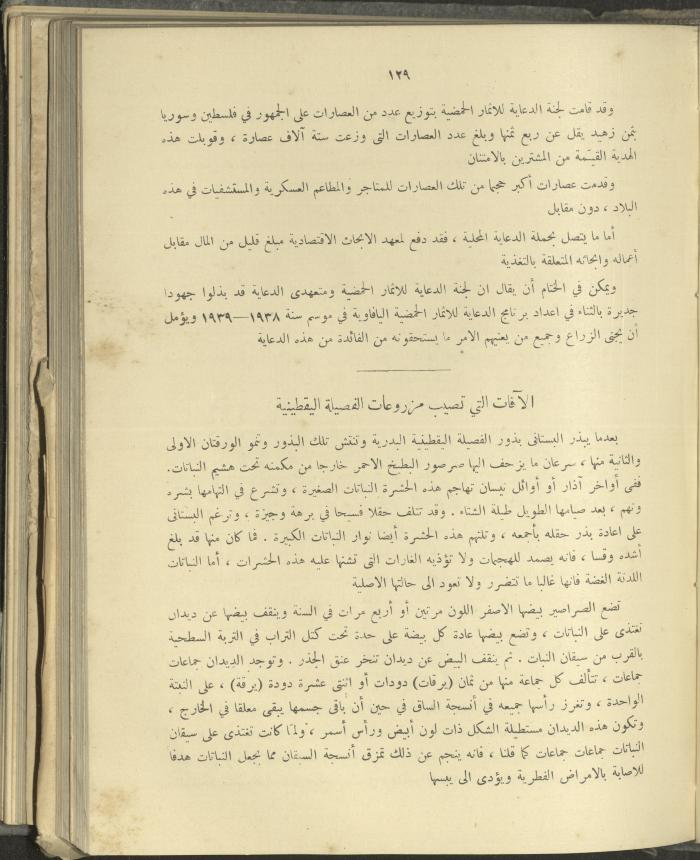 ١٢٩
وقد قامت لجنة الدعاية للاثمار الحمضية بتوزيع عدد من العصارات على الجمهور في فلسطين وسوريا
بثمن زهيد يقل عن ربع ثمنها وبلغ عدد العصارات التي وزعت ستة آلاف عصارة ، وقوبلت هذه
الهدية القيّمة من المشترين بالامتنان
وقدمت عصارات أكبر حجما من تلك العصارات للمتاجر والمطاعم العسكرية والمستشفيات في هذه
البلاد ، دون مقابل
أما ما يتصل بحملة الدعاية المحلية ، فقد دفع لمعهد الابحاث الاقتصادية مبلغ قليل من المال مقابل
أعماله وابحاثه المتعلقة بالتغذية
ويمكن في الختام أن يقال ان لجنة الدعاية للاثمار الحمضية ومتعهدى الدعاية قد بذلوا جهودا
جديرة بالثناء في اعداد برنامج الدعاية للاثمار الحمضية اليافاوية في موسم سنة ١٩٣٨—١٩٣٩ ويؤمل
أن يجنى الزراع وجميع من يعنيهم الامر ما يستحقونه من الفائدة من هذه الدعاية
الآفات التي تصيب مزروعات الفصيلة اليقطينية
بعدما يبذر البستانى بذور الفصيلة اليقطينية البدرية وتنتش تلك البذور وتنمو الورقتان الاولى
والثانية منها ، سرعان ما يزحف اليها صرصور البطيخ الاحمر خارجا من مكمنه تحت هشيم النباتات.
ففى أواخر آذار أو أوائل نيسان تهاجم هذه الحشرة النباتات الصغيرة ، وتشرع في التهامها بشره
ونهم ، بعد صيامها الطويل طيلة الشتاء . وقد تتلف حقلا فسيحا في برهة وجيزة ، وترغم البستانى
على اعادة بذر حقله بأجمعه ، وتلتهم هذه الحشرة أيضا نوار النباتات الكبيرة . فما كان منها قد بلغ
أشده وقسا ، فانه يصمد للهجمات ولا تؤذيه الغارات التى تشنها عليه هذه الحشرات ، أما النباتات
اللدنة الغضة فانها غالبا ما تتضرر ولا تعود الى حالتها الاصلية
تضع الصراصير بيضها الاصفر اللون مرتين أو أربع مرات في السنة وينقف بيضها عن ديدان
تغتذى على النباتات ، وتضع بيضها عادة كل بيضة على حدة تحت كتل التراب في التربة السطحية
بالقرب من سيقان النبات . ثم ينقف البيض عن ديدان تنخر عنق الجذر . وتوجد الديدان جماعات
جماعات ، تتألف كل جماعة منها من ثمان (يرقات) دودات أو اثنتى عشرة دودة (يرقة) ، على النبتة
الواحدة ، وتغرز رأسها جميعه في أنسجة الساق في حين أن باقى جسمها يبقى معلقا في الخارج ،
وتكون هذه الديدان مستطيلة الشكل ذات لون أبيض ورأس أسمر ، ولما كانت تغتذى على سيقان
النباتات جماعات جماعات كما قلنا ، فانه ينجم عن ذلك تمزق أنسجة السيقان مما يجعل النباتات هدفا
للاصابة بالامراض الفطرية ويؤدى الى يبسها